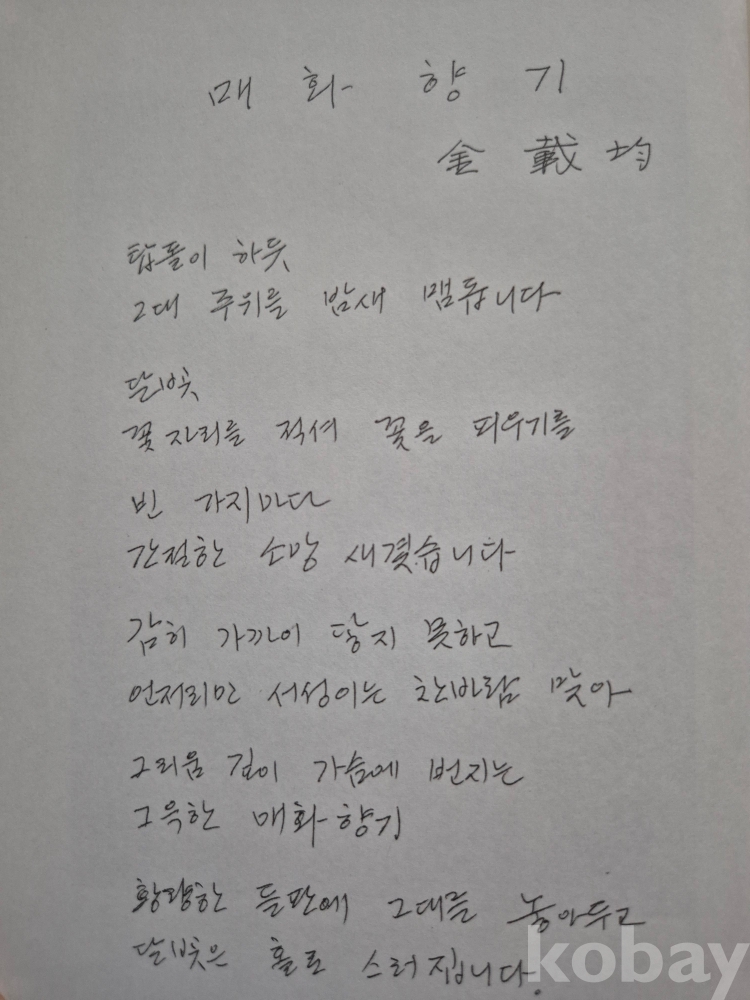 매화 향기
金載均
탑돌이 하듯
그대 주위를 밤새 맴돕니다
달빛
꽃자리를 적셔 꽃을 피우기를
빈 가지마다
간절한 소망 새겼습니다
감히 가까이 닿지 못하고
언저리만 서성이는 찬바람 맞아
그리움 깊이 가슴에 번지는
그윽한 매화향기
황량한 들판에 그대를 놓아두고
달빛은 홀로 스러집니다.
kobay